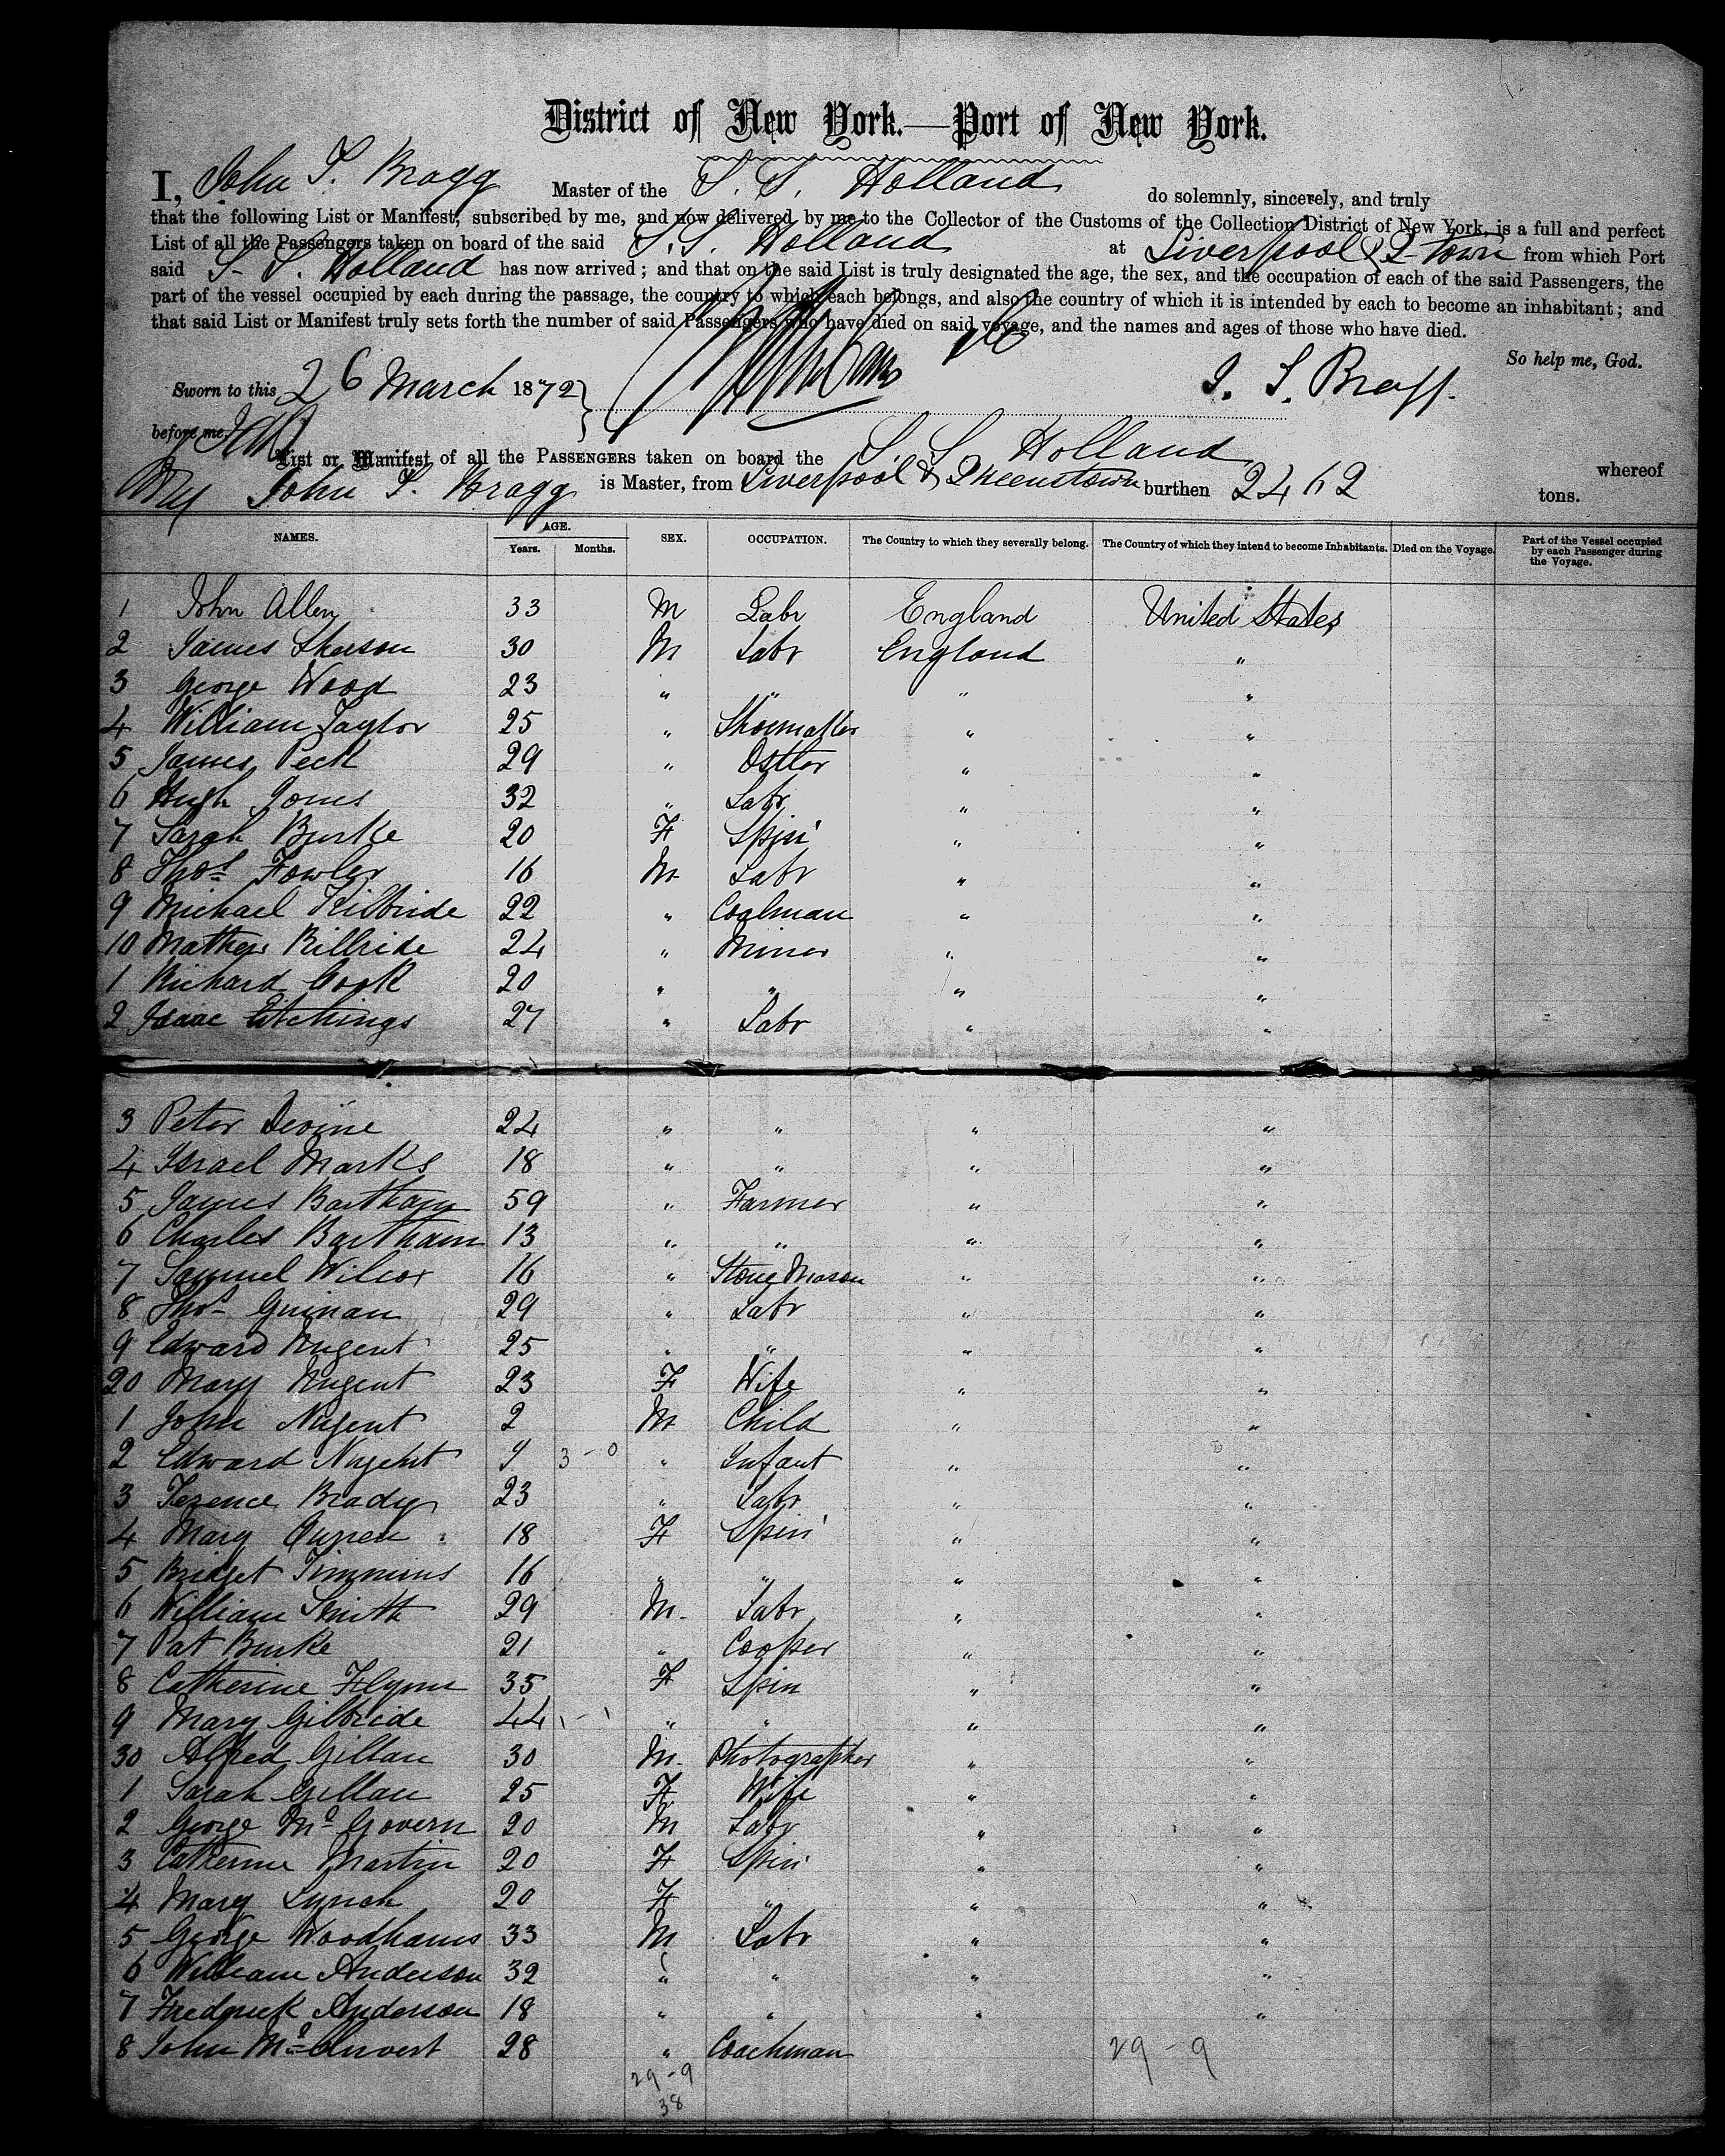 District of New York.—Port of New York.
I, John S. Bragg Master of the S. S. Holland do solemnly, sincerely, and truly
that the following List or Manifest, subscribed by me, and now delivered by me to the Collector of the Customs of the Collection District of New York, is a full and perfect
List of all the Passengers taken on board of the said S. S. Holland at Liverpool & Q-Town from which Port
said S. S. Holland has now arrived; and that on the said List is truly designated the age, the sex, and the occupation of each of the said Passengers, the
part of the vessel occupied by each during the passage, the country to which each belongs, and also the country of which it is intended by each to become an inhabitant; and
that said List or Manifest truly sets forth the number of said Passengers who have died on said voyage, and the names and ages of those who have died.
So help me, God.
Sworn to this 26 March 1872 J. S. Bragg.
before me,
List or Manifest of all the PASSENGERS taken on board the S. S. Holland whereof
John S. Bragg is Master, from Liverpool & Queenstown burthen 2462 tons.
NAMES. AGE. Years. Months. SEX. OCCUPATION. The Country to which they severally belong. The Country of which they intend to become Inhabitants. Died on the Voyage. Part of the Vessel occupied by each Passenger during the Voyage.
1 John Allen 33 M Labr England United States
2 James 30 M Labr England "
3 George Wood 23 " " " "
4 William Taylor 25 " Shoemaker " "
5 James Peck 29 " Ostler " "
6 Hugh Jones 32 " Labr " "
7 Sarah Burke 20 F Spin " "
8 Thos Fowler 16 M Labr " "
9 Michael Kilbride 22 " Coalman " "
10 Mathew Killride 24 " Miner " "
1 Richard Cook 20 " " " "
2 Isaac Etchings 27 " Labr " "
3 Peter Devine 24 " " " "
4 Israel Marks 18 " " " "
5 James Bartham 59 " Farmer " "
6 Charles Bartham 13 " " " "
7 Samuel Wilcox 16 " Stone Mason " "
8 Thos Guinan 29 " Labr " "
9 Edward Nugent 25 " " " "
20 Mary Nugent 23 F Wife " "
1 John Nugent 2 M Child " "
2 Edward Nugent 9 3 - 0 " Infant " "
3 Terence Brady 23 " Labr " "
4 Mary 18 F Spin " "
5 Bridget Timmins 16 " " " "
6 William Smith 29 M. Labr " "
7 Pat Burke 21 " Cooper " "
8 Catherine Flynn 35 F Spin " "
9 Mary Gilbride 44 1 - 1 " " " "
30 Alfred Gillan 30 M. Photographer " "
1 Sarah Gillan 25 F Wife " "
2 George Mc Govern 20 M Labr " "
3 Catherine Martin 20 F Spin " "
4 Mary Lynch 20 F " " "
5 George Woodhams 33 M Labr " "
6 William Anderson 32 " " " "
7 Frederick Anderson 18 " " " "
8 John 28 " Coachman
29 - 9 29 - 9
38